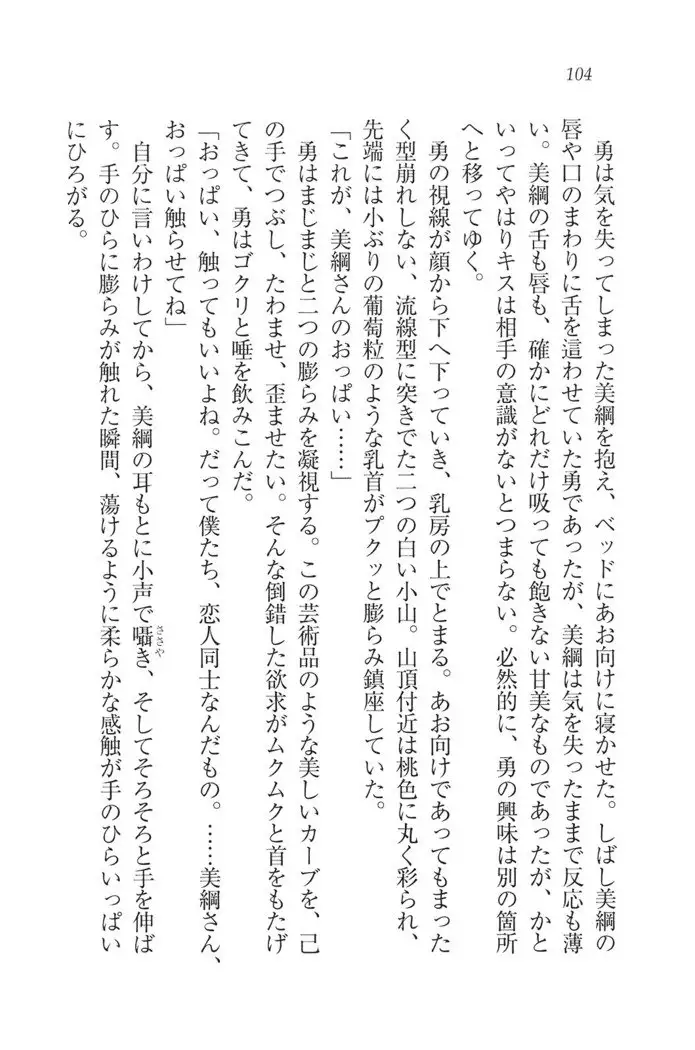 104
勇は気を失ってしまった美綱を抱え、ベッドにあお向けに寝かせた。しばし美綱の
唇や口のまわりに舌を這わせていた勇であったが、美綱は気を失ったままで反応も薄
い。美綱の舌も唇も、確かにどれだけ吸っても飽きない甘美なものであったが、かと
いってやはりキスは相手の意識がないとつまらない。必然的に、勇の興味は別の箇所
へと移ってゆく。
勇の視線が顔から下へ下っていき、乳房の上でとまる。あお向けであってもまった
く型崩れしない、流線型に突きでた二つの白い小山。山頂付近は桃色に丸く彩られ、
先端には小ぶりの葡萄粒のような乳首がプクッと膨らみ鎮座していた。
「これが、美綱さんのおっぱい……」
勇はまじまじと二つの膨らみを凝視する。この芸術品のような美しいカーブを、己
の手でつぶし、たわませ、歪ませたい。そんな倒錯した欲求がムクムクと首をもたげ
てきて、勇はゴクリと唾を飲みこんだ。
「おっぱい、触ってもいいよね。だって僕たち、恋人同士なんだもの。……美綱さん、
おっぱい触らせてね」
自分に言いわけしてから、美綱の耳もとに小声で囁き、そしてそろそろと手を伸ば
ささや
す。手のひらに膨らみが触れた瞬間、蕩けるように柔らかな感触が手のひらいっぱい
にひろがる。